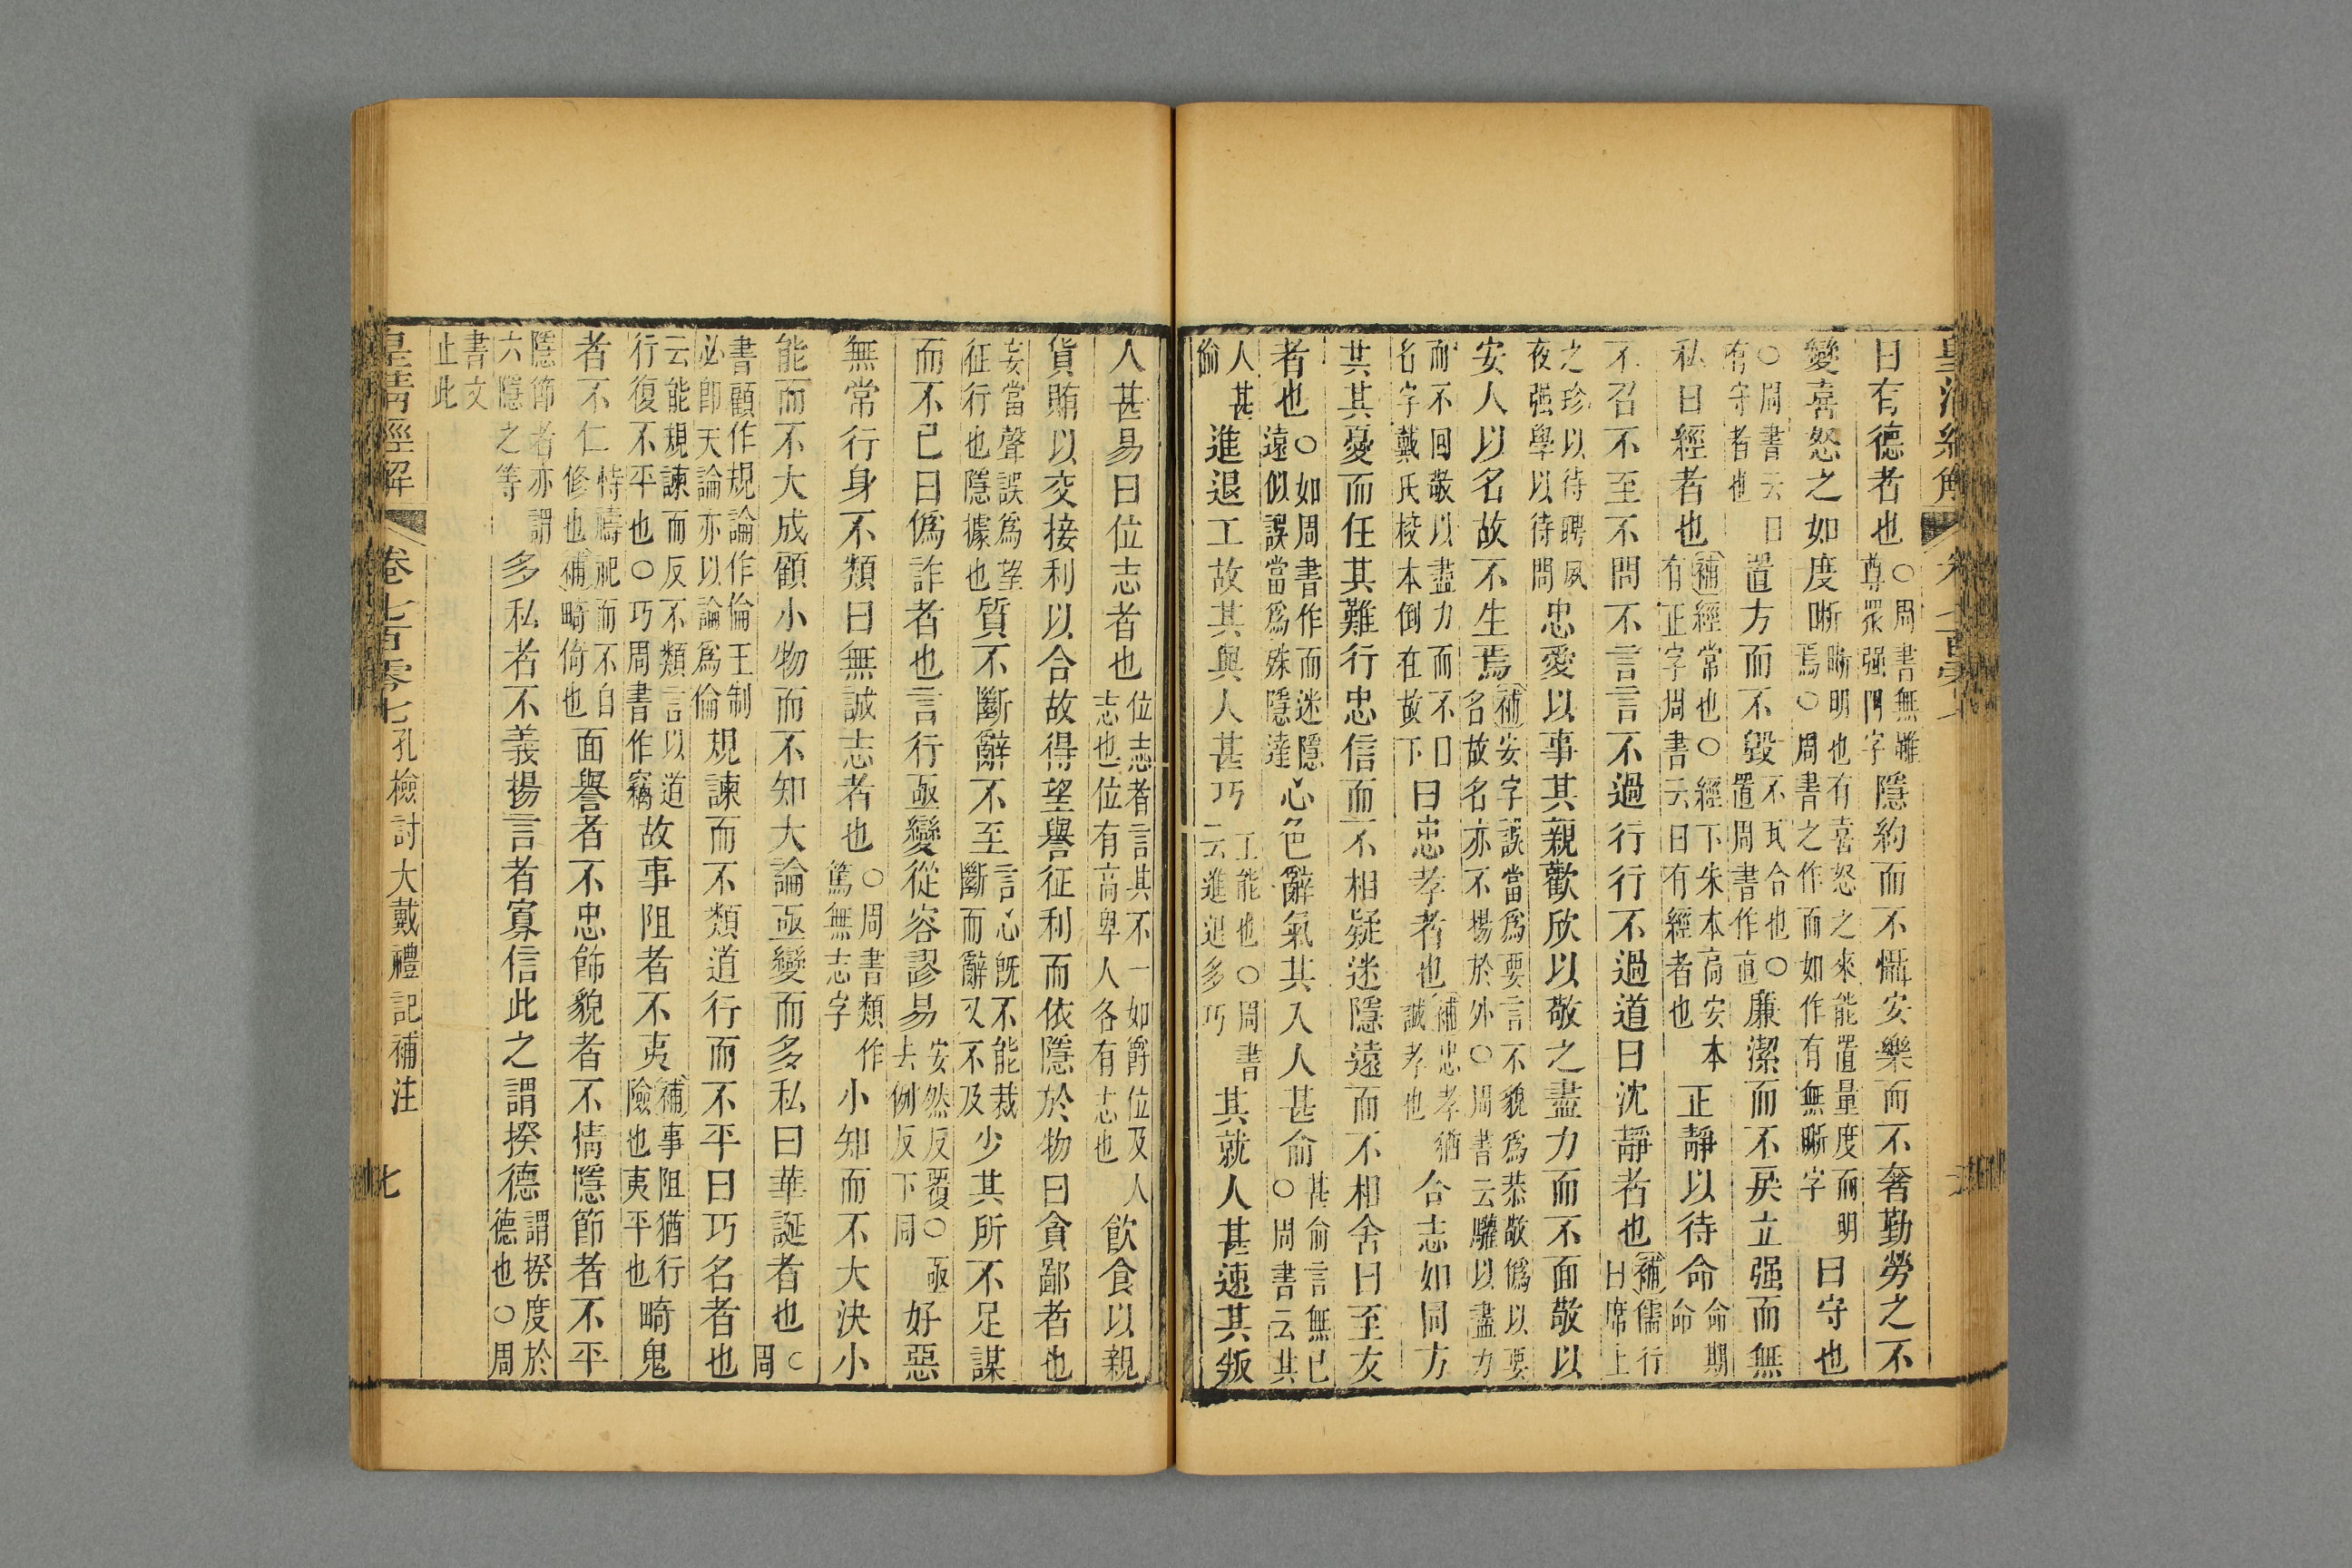 皇清經解 卷七百零七
曰有德者也○周書無尊眾强門字隱約而不懾安樂而不奢勤勞之不
變喜怒之如度晰晰明也有喜怒之來能置量度而明焉○周書之作而如作有無晰字曰守也
○周書云曰有守者也置方而不毀不瓦合也○置周書作直廉潔而不戾立强而無
私曰經者也補經常也○經下朱本高安本有正字周書云曰有經者也正靜以待命命期命
不召不至不問不言言不過行行不過道曰沈靜者也補儒行曰席上
之珍以待聘夙夜强學以待問忠愛以事其親歡欣以敬之盡力而不面敬以
安人以名故不生焉補安字誤當爲要言不貌爲恭敬僞以要名故名亦不揚於外○周書云驩以盡力
而不回敬以盡力而不口名字戴氏校本倒在故下曰忠孝者也補忠孝猶誠孝也合志如同方
共其憂而任其難行忠信而不相疑迷隱遠而不相舍曰至友
者也○如周書作而迷隱遠似誤當爲殊隱達心色辭氣其入人甚俞甚俞言無已○周書云其
人甚偷進退工故其與人甚巧工能也○周書云進退多巧其就人甚速其叛
人甚易曰位志者也位志者言其不一如爵位及人志也位有高卑人各有志也飲食以親
貨賄以交接利以合故得望譽征利而依隱於物曰貪鄙者也
妄當聲誤爲望征行也隱據也質不斷辭不至言心旣不能裁斷而辭又不及少其所不足謀
而不已曰僞詐者也言行亟變從容謬易安然反覆○亟去例反下同好惡
無常行身不類曰無誠志者也○周書類作篤無志字小知而不大決小
能而不大成顧小物而不知大論亟變而多私曰華誕者也○周
書顧作規論作倫王制云必卽天論亦以論爲倫規諫而不類道行而不平曰巧名者也
云能規諫而反不類言以道行復不平也○巧周書作竊故事阻者不夷補事阻猶行險也夷平也畸鬼
者不仁恃禱祀而不自修也補畸倚也面譽者不忠飾貌者不情隱節者不平
隱節者亦謂六隱之等多私者不義揚言者寡信此之謂揆德謂揆度於德也○周
書文止此
皇清經解 卷七百零七 孔檢討大戴禮記補注 七